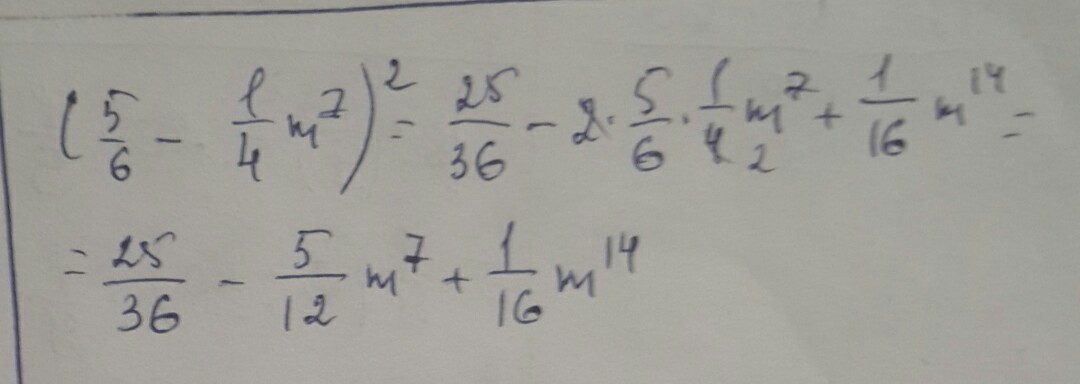 (5/6 - 1/4 m^7)^2 = 25/36 - 2 · 5/6 · 1/4 2 m^7 + 1/16 m^14 =
= 25/36 - 5/12 m^7 + 1/16 m^14